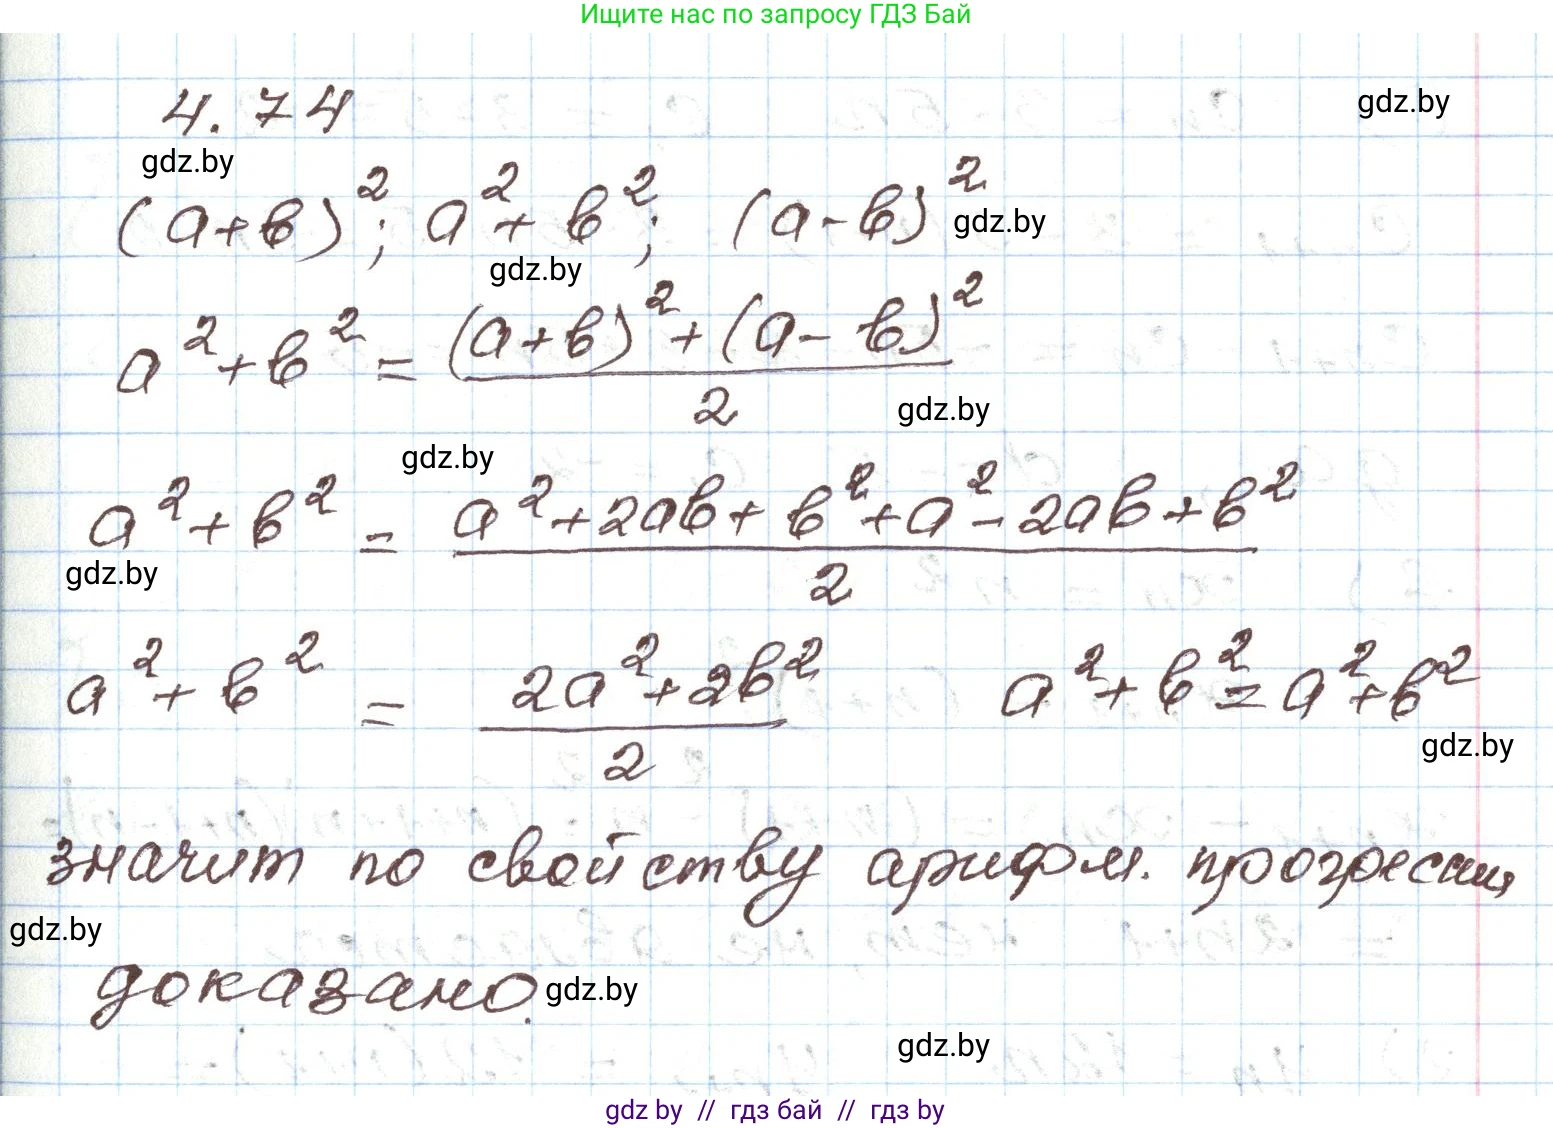 Ищите нас по запросу ГДЗ Бай
4.74
gdz.by
gdz.by
(a+b)²; a²+b²; (a-b)²
gdz.by
gdz.by
a²+b² = ((a+b)²+(a-b)²)/2
gdz.by
gdz.by
a²+b² = (a²+2ab+b²+a²-2ab+b²)/2
gdz.by
a²+b² = (2a²+2b²)/2 a²+b²=a²+b²
gdz.by
значит по свойству арифм. прогрессии,
gdz.by
доказано.
gdz.by
gdz.by
gdz by // гдз бай // гдз by